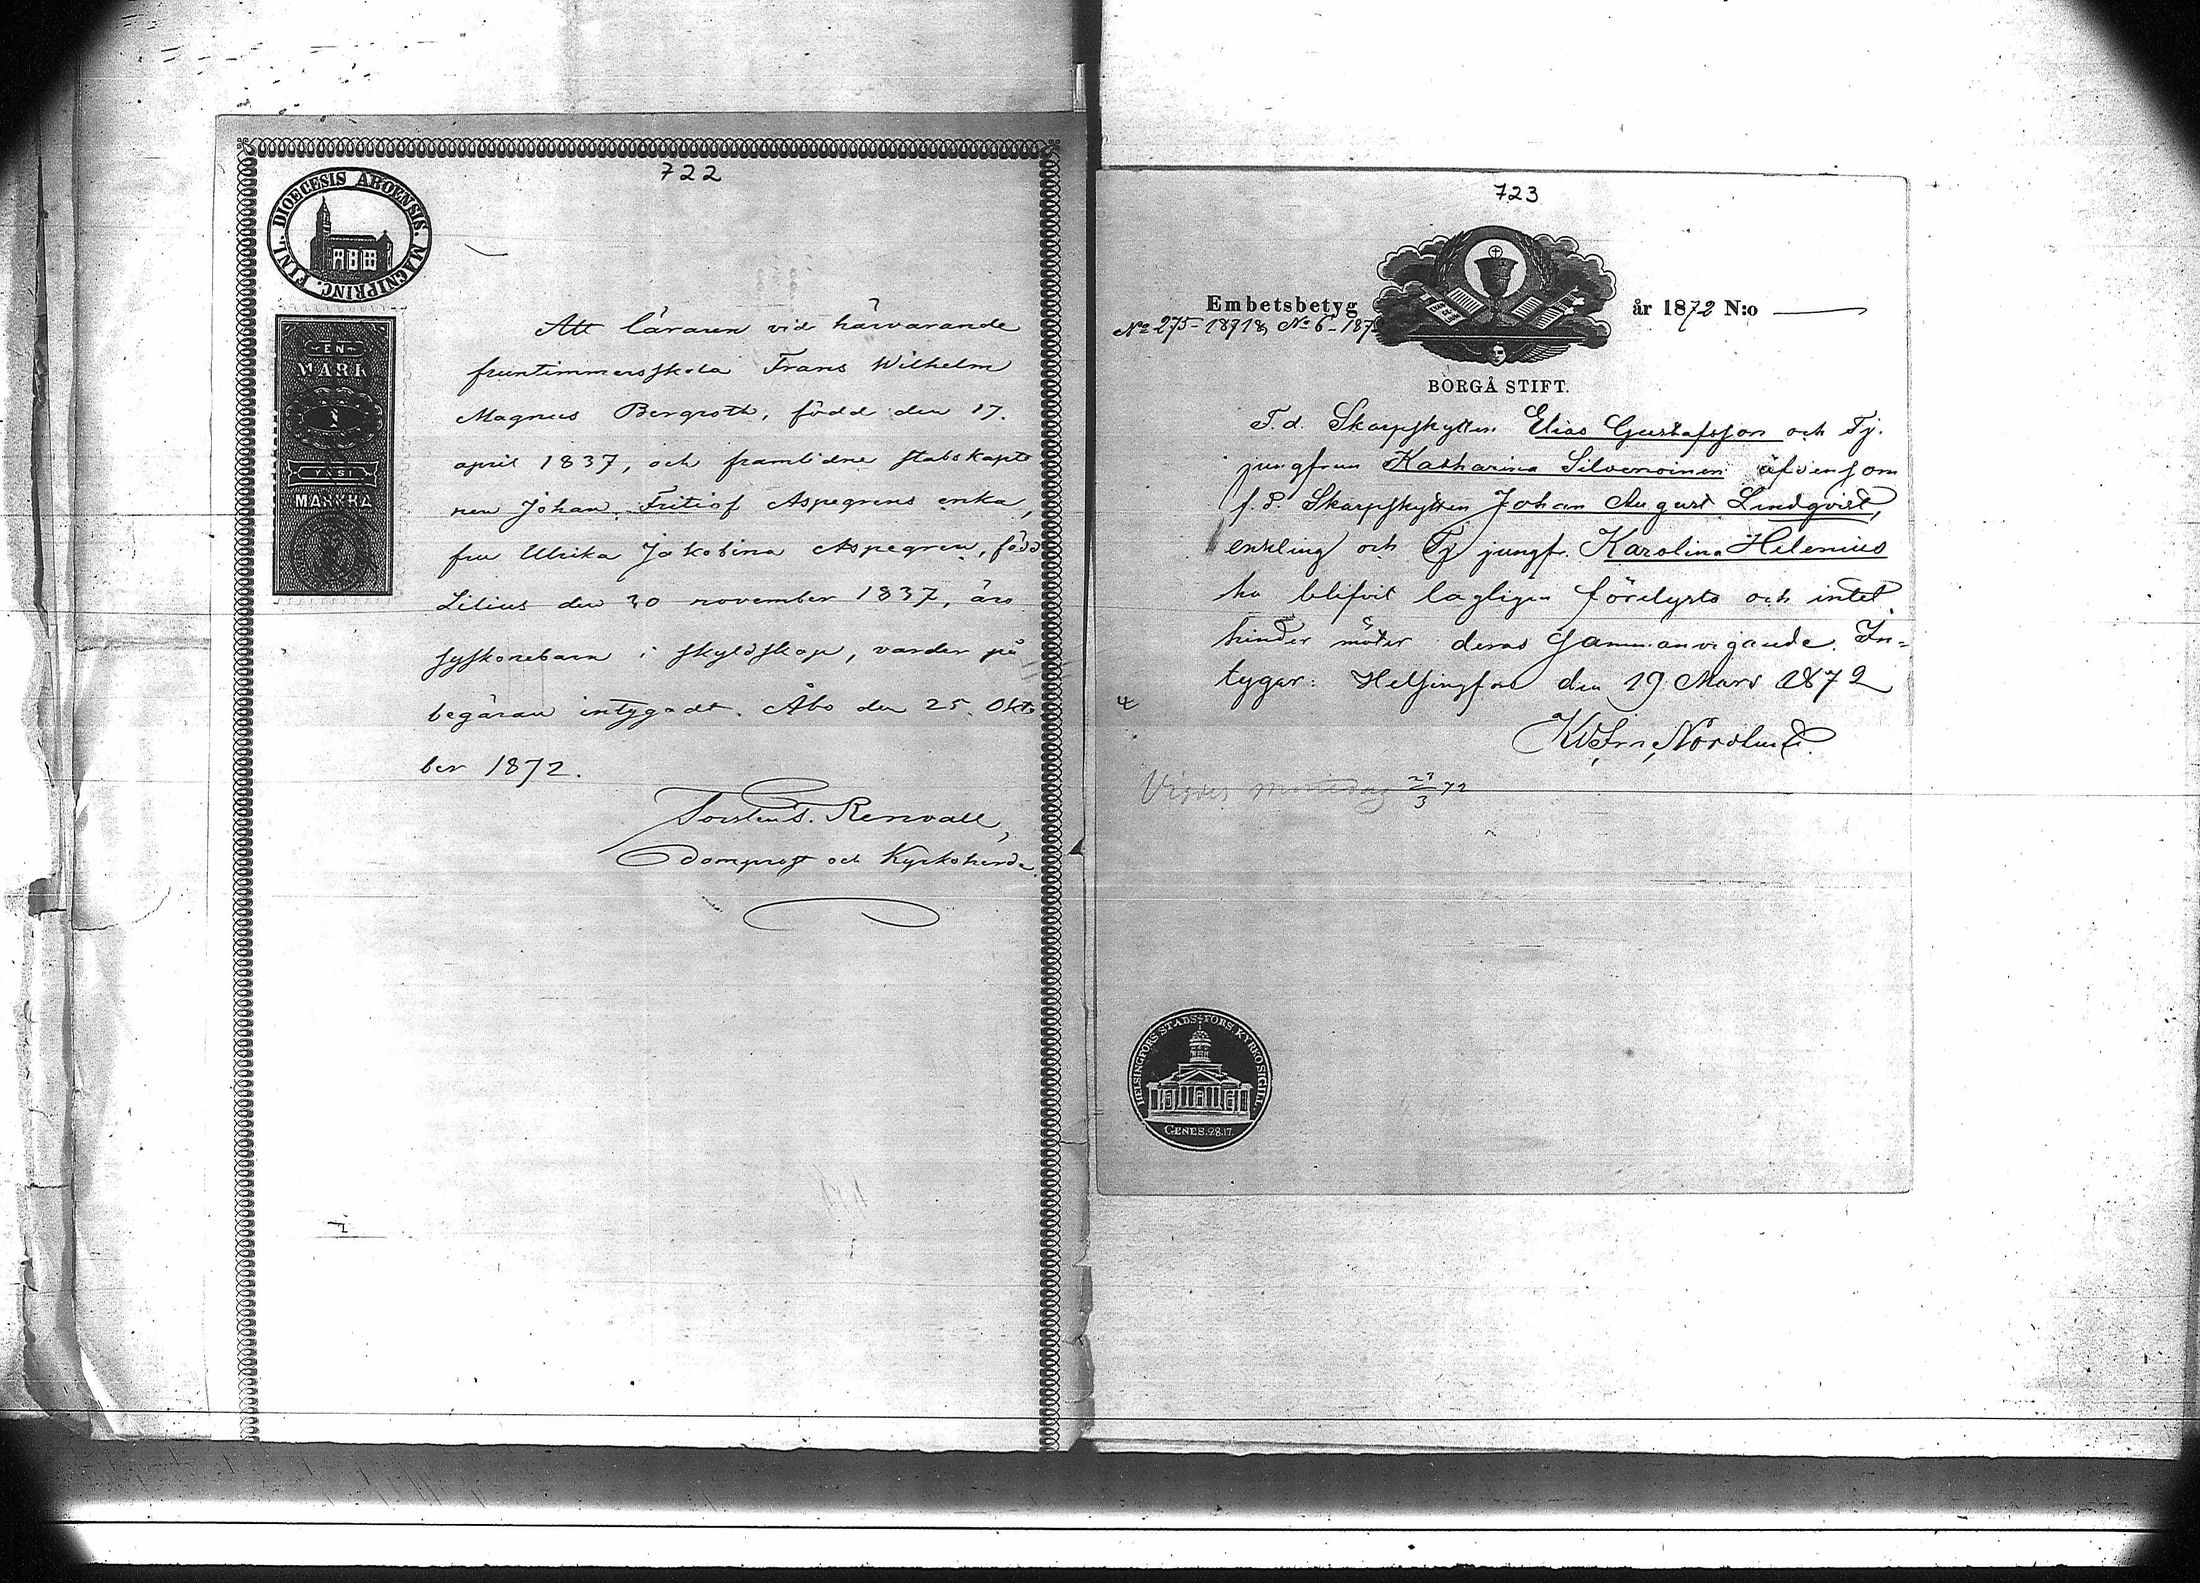 722
FINL. DIOECESIS ABOENSIS. MAGNIPRINC.
EN
MARK
1
YKSI
MARKKA
Att läraren vid härvarande
fruntimmersskola Frans Wilhelm
Magnus Bergroth, född den 17.
april 1837, och framlidne stabskapte
nen Johan Fritiof Aspegrens enka,
fru Ulrika Jakobina Aspegren, född
Lilius den 30 november 1837, äro
syskonebarn i skyldskap, varder på
begäran intygadt. Åbo den 25. Okto
ber 1872.
Torsten T. Renvall,
domprost och Kyrkoherde.
723
Embetsbetyg år 1872 N:o
No 275-1871 & No 6-187
BORGÅ STIFT.
F.d. Skarpskytten Elias Gustafsson och Tj.
jungfrun Katharina Silvenoinen äfvensom
f.d. Skarpskytten Johan August Lindqvist,
enkling och Tj jungf. Karolina Helenius
ha blifvit lagligen förelysta och intet
hinder möter deras sammanvigande. In-
tygar: Helsingfors den 19 Mars 1872
Nordlund.
Vigdes måndag 25/3 72
HELSINGFORS STADS FÖRS. KYRKO SIGILL.
GENES. 28.17.